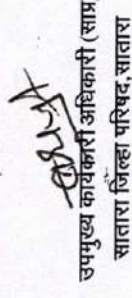 उपमुख्य कार्यकारी अधिकारी (साप्र
सातारा जिल्हा परिषद, सातारा